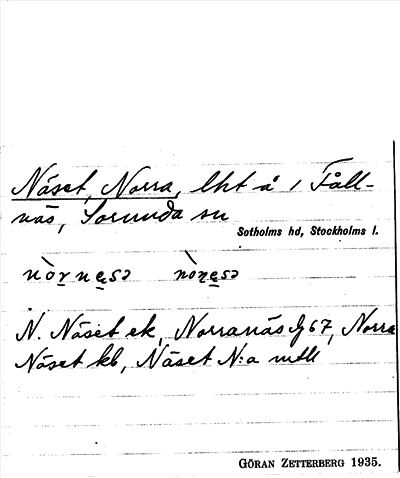 Näset, Norra, lht å 1 Fåll-
näs, Sorunda sn
Sotholms hd, Stockholms l.
nòṟnęsə nòṉęsə
N. Näset ek, Norranäs Jg 67, Norra
Näset kb, Näset N:a mtl
GÖRAN ZETTERBERG 1935.